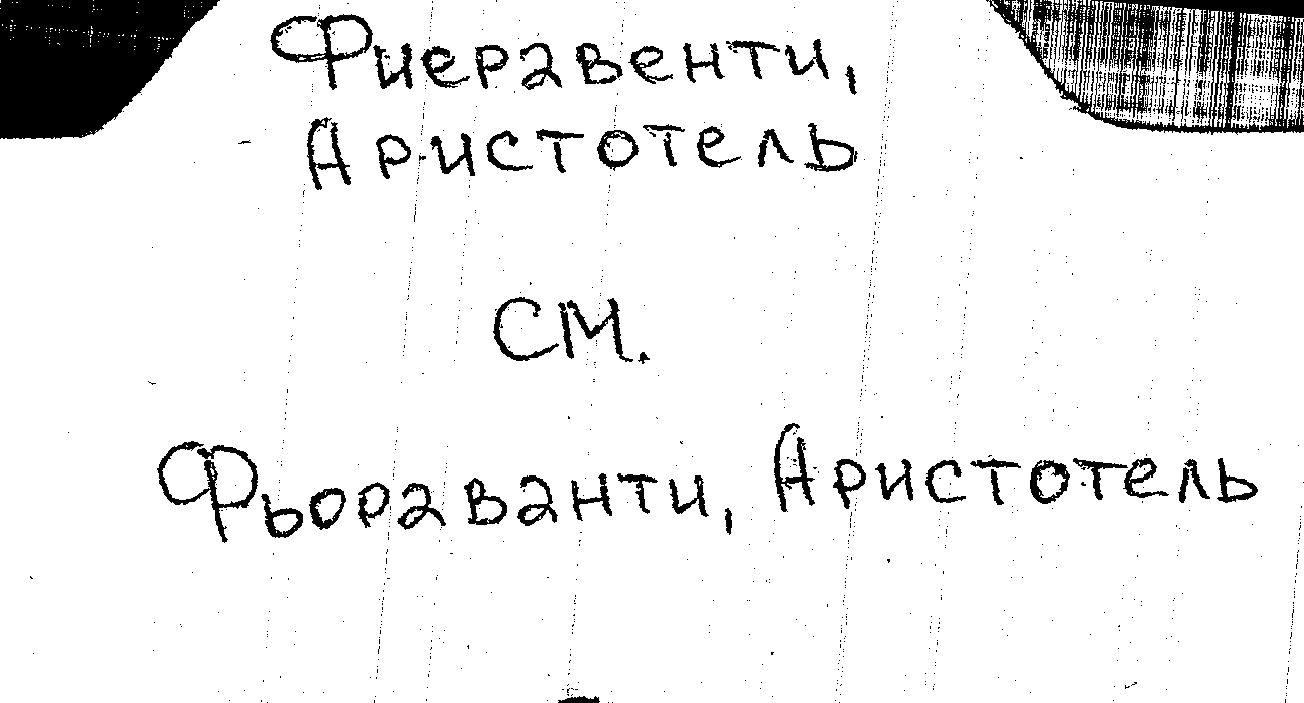 Фиеравенти,
Аристотель
см.
Фьораванти, Аристотель